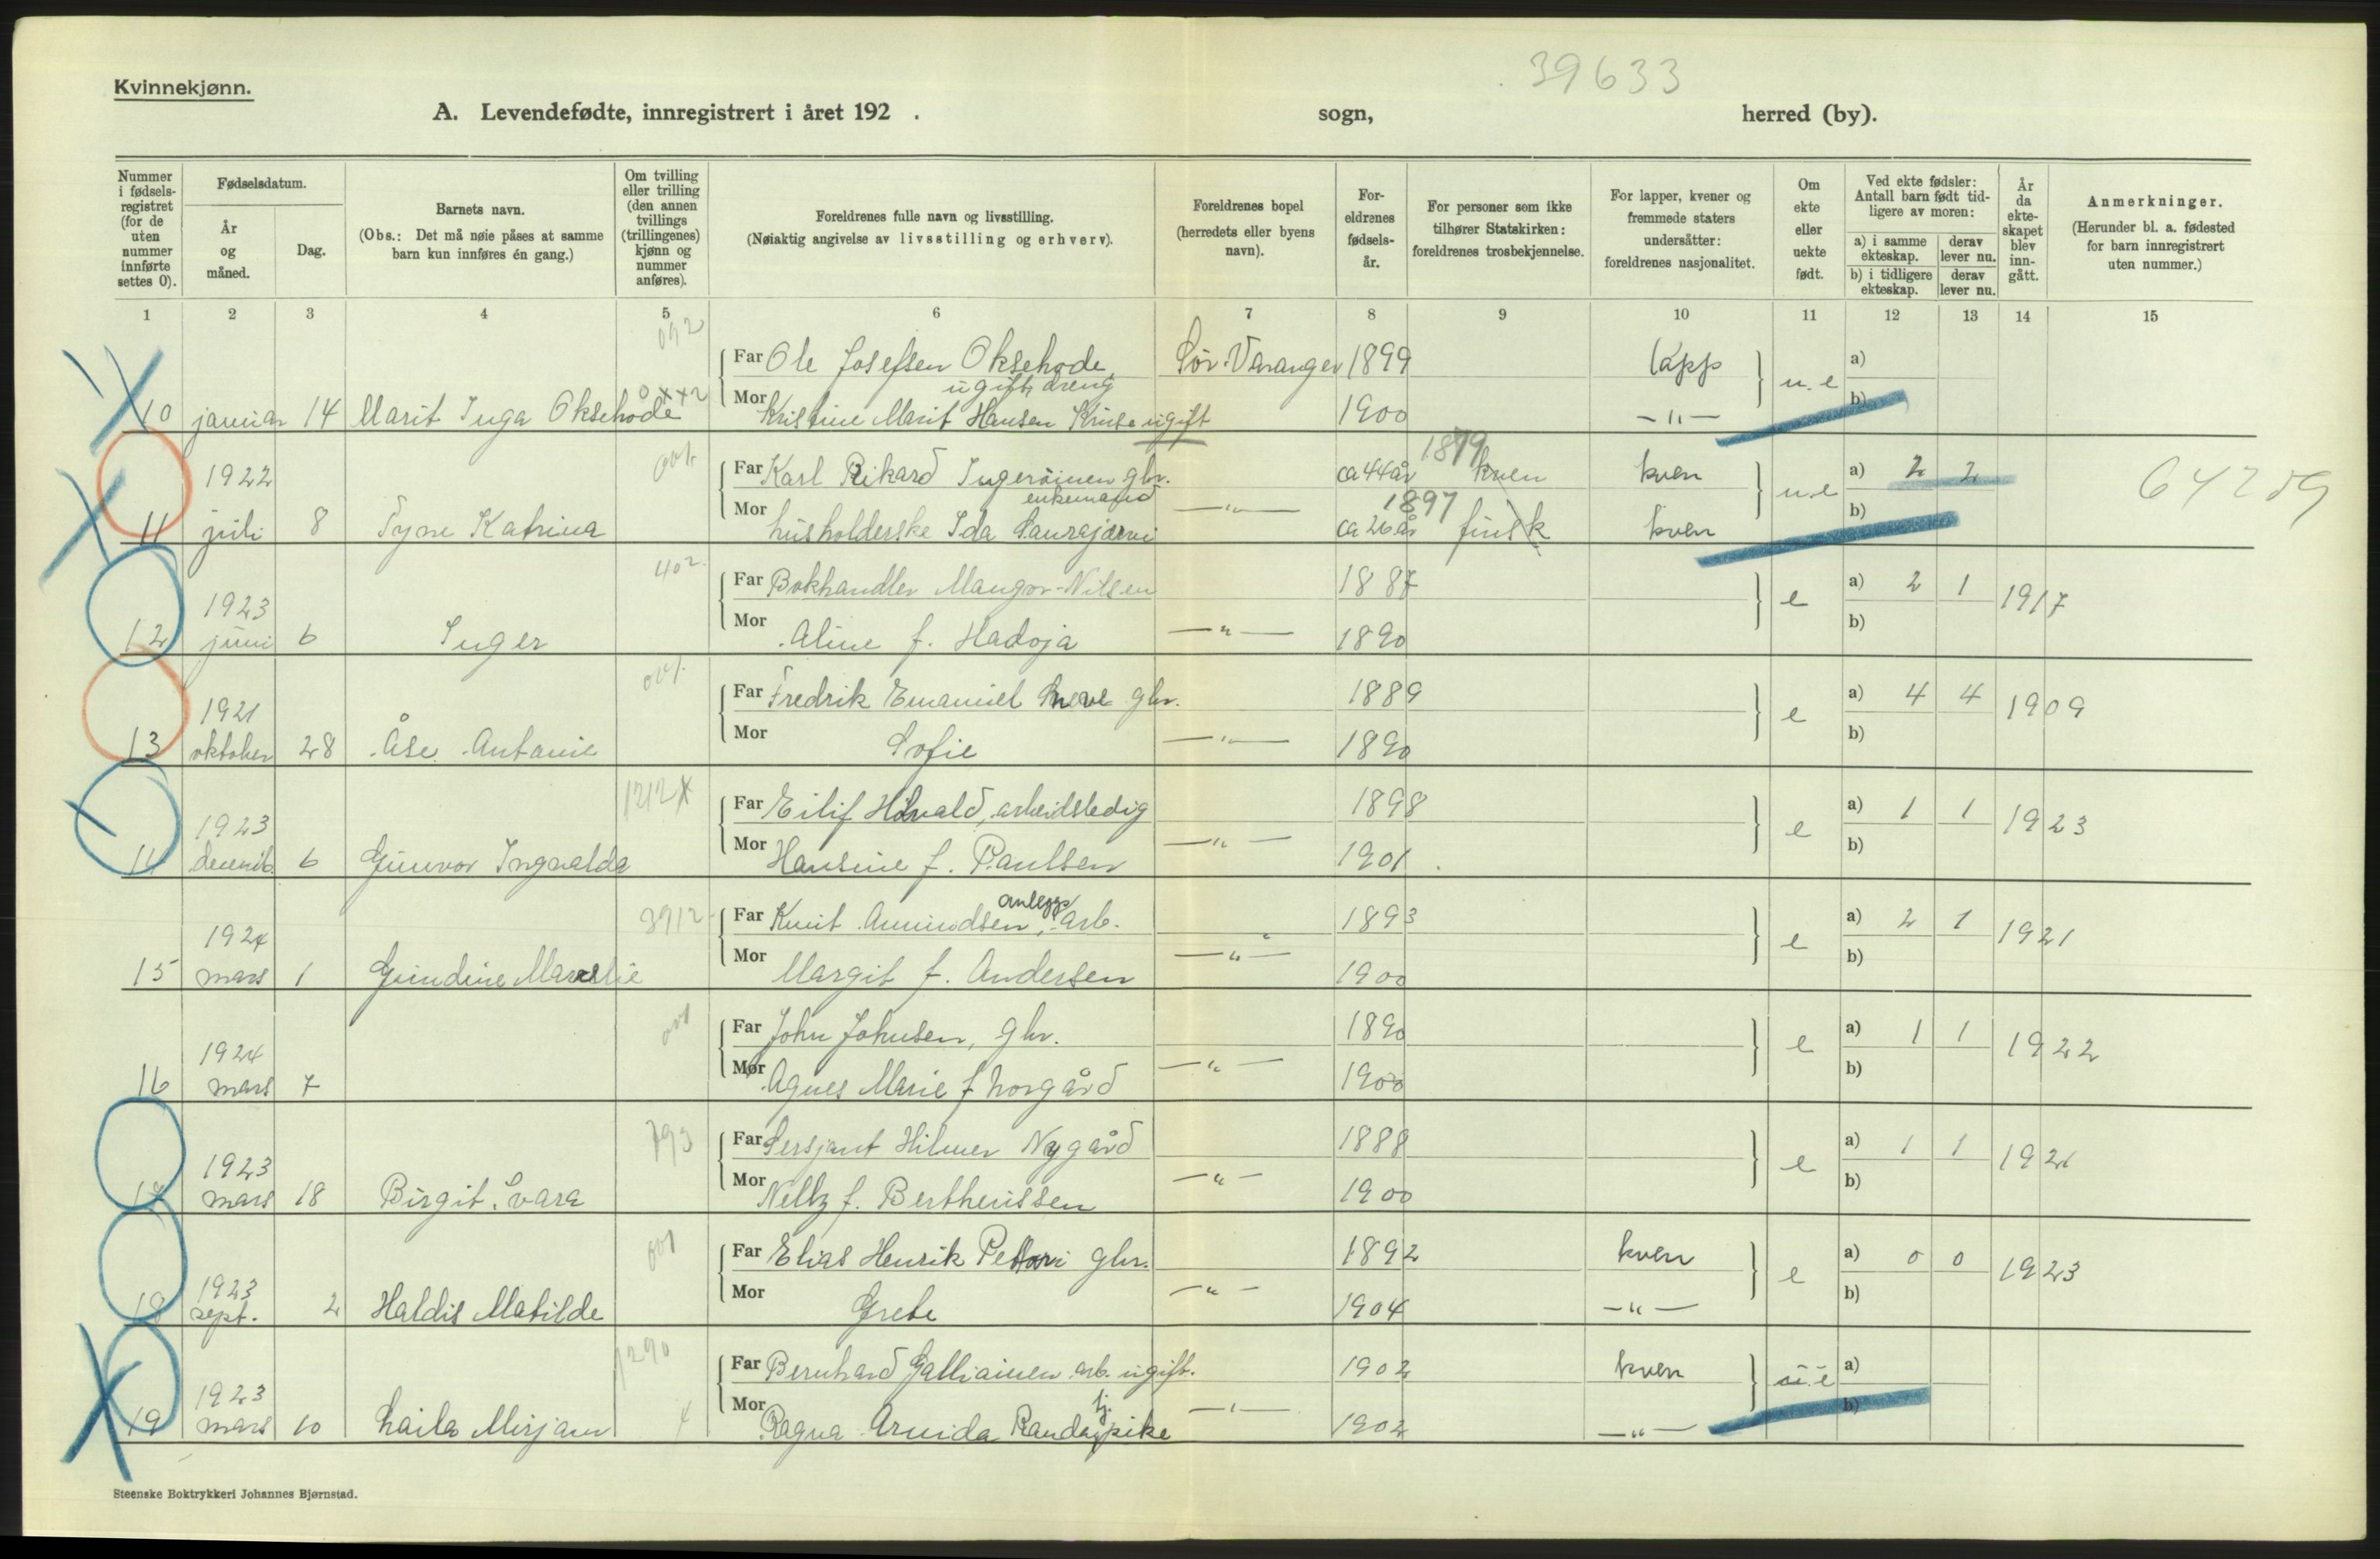 39633
Kvinnekjønn.
A. Levendefødte, innregistrert i året 192 . sogn, herred (by).
Nummer i fødsels-registret (for de uten nummer innførte settes 0).
Fødselsdatum.
År og måned.
Dag.
Barnets navn.
(Obs.: Det må nøie påses at samme barn kun innføres én gang.)
Om tvilling eller trilling (den annen tvillings (trillingenes) kjønn og nummer anføres).
Foreldrenes fulle navn og livsstilling.
(Nøiaktig angivelse av livsstilling og erhverv).
Foreldrenes bopel (herredets eller byens navn).
For-eldrenes fødsels-år.
For personer som ikke tilhører Statskirken: foreldrenes trosbekjennelse.
For lapper, kvener og fremmede staters undersåtter: foreldrenes nasjonalitet.
Om ekte eller uekte født.
Ved ekte fødsler: Antall barn født tid-ligere av moren:
a) i samme ekteskap.
derav lever nu.
b) i tidligere ekteskap.
derav lever nu.
År da ekte-skapet blev inn-gått.
Anmerkninger.
(Herunder bl. a. fødested for barn innregistrert uten nummer.)
1 2 3 4 5 6 7 8 9 10 11 12 13 14 15
092
Far Ole Josefsen Oksehode Sør-Varanger 1899 lapp a)
ugift dreng
0xx2 u.e
10 januar 14 Marit Inga Oksehode Mor Kristine Marit Hansen Kruse ugift 1900 —"— b)
1922 001 Far Karl Rikard Ingeröinen gbr. ca 44 år 1879 kven kven a) 2 2
enkemand
u.e 64259
11 juli 8 Tyne Katrina Mor husholderske Ida Saurajärvi —"— ca 26 år 1897 finsk kven b)
1923 402 Far Bokhandler Mangor-Nilsen 1887 a) 2 1
e 1917
12 juni 6 Inger Mor Aline f. Hadoja —"— 1890 b)
1921 001 Far Fredrik Emanuel Sneve gbr. 1889 a) 4 4
e 1909
13 oktober 28 Åse Antonie Mor Sofie —"— 1890 b)
1923 1212 x Far Eilif Hovald, arbeidsledig 1898 a) 1 1
e 1923
14 decemb. 6 Gunvor Ingvalda Mor Hansine f. Paulsen —"— 1901 b)
1924 3912 Far Knut Amundsen, anleggs arb. 1893 a) 2 1
e 1921
15 mars 1 Gundine Mor Margit f. Andersen —"— 1900 b)
1924 001 Far John Johnsen, gbr. 1890 a) 1 1
e 1922
16 mars 7 Mor Agnes Marie f Norgård —"— 1900 b)
1923 793 Far Sersjant Hilmer Nygård 1888 a) 1 1
e 1921
17 mars 18 Birgit Svara Mor Nelly f. Bertheussen —"— 1900 b)
1923 001 Far Elias Henrik Pettari gbr. 1892 kven a) 0 0
e 1923
18 sept. 2 Haldis Matilde Mor Grete —"— 1904 —"— b)
1923 1290 Far Bernhard Galliainen arb. ugift. 1902 kven a)
u.e
19 mars 10 Laila Mirjam x Mor Ragna Arnida Randa, tj. pike —"— 1902 —"— b)
Steenske Boktrykkeri Johannes Bjørnstad.